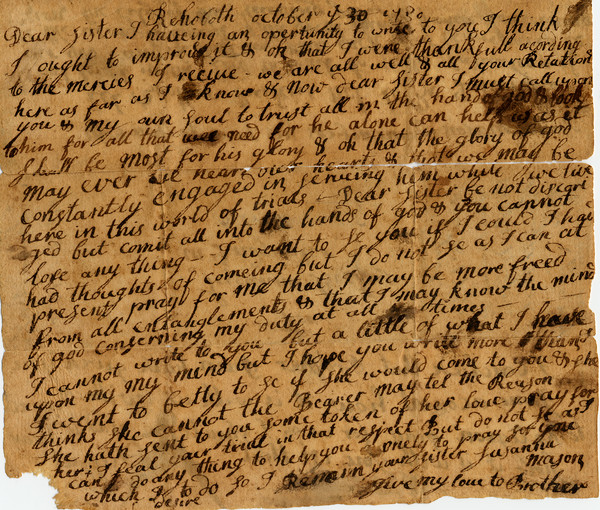 Rehoboth october ye 30 1780
Dear Sister I haveing an opertunity to write to you I think
I ought to improve it & oh that I were thankfull acording
to the mercies I receive - we are all well & all your Relations
here as far as I know & now dear Sister I must call upon
you & my own soul to trust all in the hand of god & look
to him for all that we need for he alone can help us as it
shall be most for his glory & oh that the glory of god
may ever lie near our hearts & that we may be
constantly engaged in serveing him while we live
here in this world of trials - Dear Sister be not discori
ged but comit all into the hands of god & you cannot
lose any thing - I want to se you if I could I hai
had thoughts of comeing but I do not se as I can at
present pray for me that I may be more freed
from all entanglements & that I may know the mind
of god concerning my duty at all times
I cannot write to you but a little of what I have
upon my my mind but I hope you write more than I
I went to betty to se if she would come to you & she
thinks she cannot the Bearer may tel the Reason
She hath sent to you some token of her love pray for
her I feal your trial in that respect But do not se as I
can do any thing to help you onely to pray for you
which I desire to do so I Remain your sister Susanna
Mason
give my love to Brother